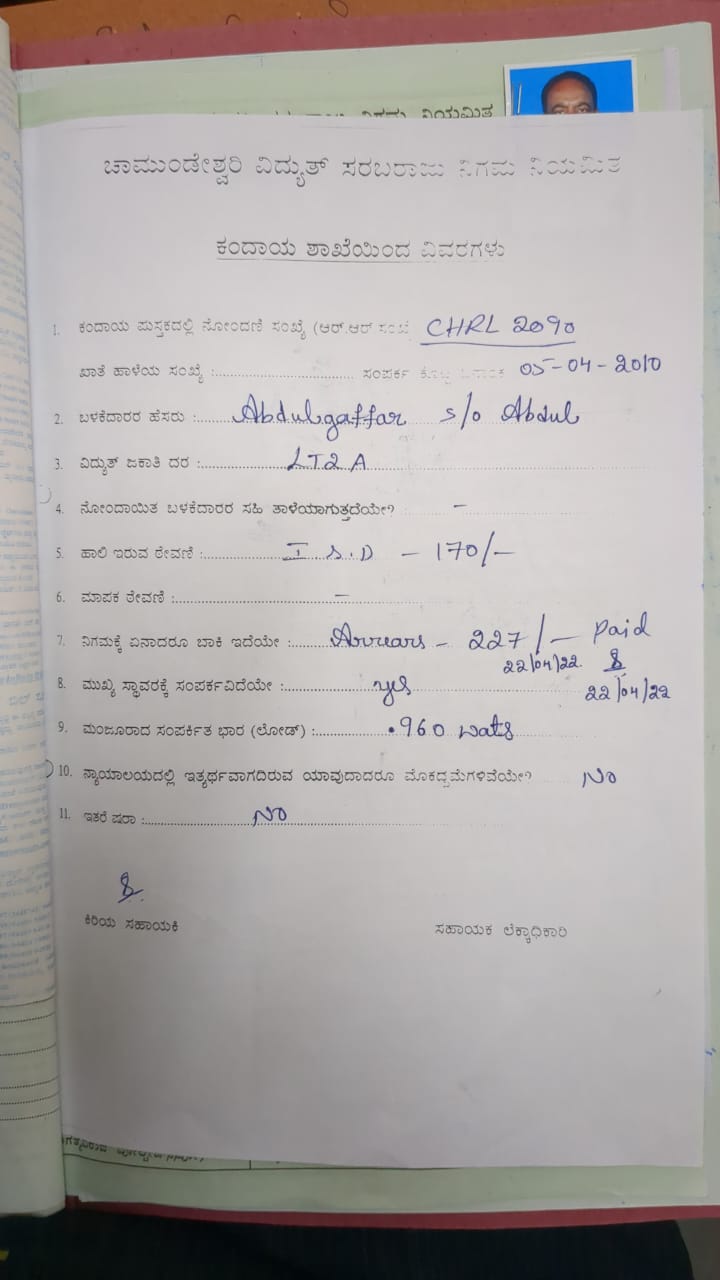 ನಿಗಮ ನಿಯಮಿತ
ಚಾಮುಂಡೇಶ್ವರಿ ವಿದ್ಯುತ್ ಸರಬರಾಜು ನಿಗಮ ನಿಯಮಿತ
ಕಂದಾಯ ಶಾಖೆಯಿಂದ ವಿವರಗಳು
1. ಕಂದಾಯ ಪುಸ್ತಕದಲ್ಲಿ ನೋಂದಣಿ ಸಂಖ್ಯೆ (ಆರ್.ಆರ್ ಸಂಖ್ಯೆ CHRL 2090
ಖಾತೆ ಹಾಳೆಯ ಸಂಖ್ಯೆ :.................. ಸಂಪರ್ಕ ಕೊಟ್ಟ ದಿನಾಂಕ 05-04-2010
2. ಬಳಕೆದಾರರ ಹೆಸರು :...... Abdulgaffar s/o Abdul
3. ವಿದ್ಯುತ್ ಜಕಾತಿ ದರ :............ LT2A
4. ನೋಂದಾಯಿತ ಬಳಕೆದಾರರ ಸಹಿ ತಾಳೆಯಾಗುತ್ತದೆಯೇ? –
5. ಹಾಲಿ ಇರುವ ಠೇವಣಿ :........... I S.D – 170/–
6. ಮಾಪಕ ಠೇವಣಿ :.................. –
7. ನಿಗಮಕ್ಕೆ ಏನಾದರೂ ಬಾಕಿ ಇದೆಯೇ :...... Arrears – 227/– Paid
22/04/22.
8. ಮುಖ್ಯ ಸ್ಥಾವರಕ್ಕೆ ಸಂಪರ್ಕವಿದೆಯೇ :............ yes 22/04/22
9. ಮಂಜೂರಾದ ಸಂಪರ್ಕಿತ ಭಾರ (ಲೋಡ್) :.......... .960 wats
10. ನ್ಯಾಯಾಲಯದಲ್ಲಿ ಇತ್ಯರ್ಥವಾಗದಿರುವ ಯಾವುದಾದರೂ ಮೊಕದ್ದಮೆಗಳಿವೆಯೇ? NO
11. ಇತರೆ ಷರಾ :............ NO
ಕಿರಿಯ ಸಹಾಯಕಿ ಸಹಾಯಕ ಲೆಕ್ಕಾಧಿಕಾರಿ